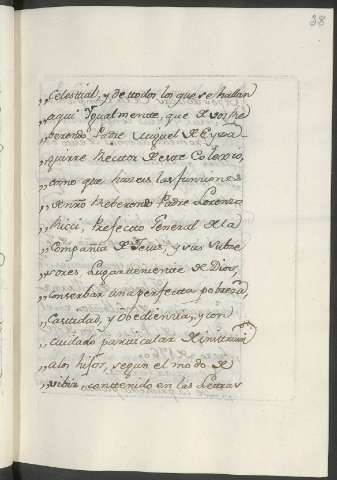 38
„Celestial, y de todos los que se hallan
„aqui ygualmente, que a vos Re
„berendo Padre Miguel de Eyza-
„guirre Rector de este Colexio,
„como que haceis las funciones
„de nro Reberendo Padre Lorenzo
„Ricci, Prefecto General de la
„Compañia de Jesus, y sus Subce
„sores, Lugartheniente de Dios,
„conserbar una perfecta pobreza,
„Castidad, y Obediencia, y con
„cuidado particular de instruir
„a los hijos, segun el modo de
„vibir, contenido en las Letras